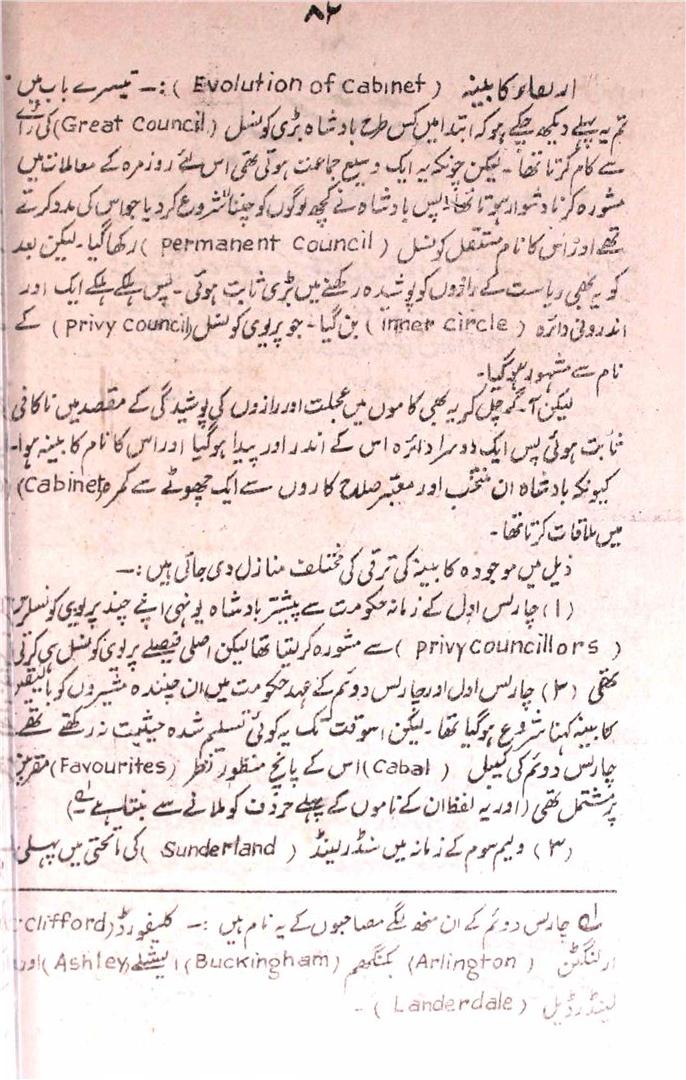 ۸۲
ارتقاء کابینہ ( Evolution of Cabinet ) :— تیسرے باب میں
تم یہ پہلے دیکھ چکے ہو کہ ابتدا میں کس طرح بادشاہ بڑی کونسل (Great Council) کی رائے
سے کام کرتا تھا۔ لیکن چونکہ یہ ایک وسیع جماعت ہوتی تھی اس لئے روزمرہ کے معاملات میں
مشورہ کرنا دشوار ہوتا تھا۔ پس بادشاہ نے کچھ لوگوں کو چننا شروع کر دیا جو اس کی مدد کرتے
تھے اور اس کا نام مستقل کونسل ( permanent Council ) رکھا گیا۔ لیکن بعد
کو یہ بھی ریاست کے رازوں کو پوشیدہ رکھنے میں بڑی ثابت ہوئی۔ پس ہلکے ہلکے ایک اور
اندرونی دائرہ ( inner circle ) بن گیا۔ جو پریوی کونسل (privy Council) کے
نام سے مشہور ہو گیا۔
لیکن آگے چل کر یہ بھی کاموں میں عجلت اور رازوں کی پوشیدگی کے مقصد میں ناکافی
ثابت ہوئی پس ایک دوسرا دائرہ اس کے اندر اور پیدا ہو گیا اور اس کا نام کابینہ ہوا۔
کیونکہ بادشاہ ان منتخب اور معتبر صلاح کاروں سے ایک چھوٹے سے کمرہ (Cabinet)
میں ملاقات کرتا تھا۔
ذیل میں موجودہ کابینہ کی ترقی کی مختلف منازل دی جاتی ہیں :—
(۱) چارلس اول کے زمانہ حکومت سے پیشتر بادشاہ یونہی اپنے چند پریوی کونسلرز
( privy councillors ) سے مشورہ کر لیتا تھا لیکن اصلی فیصلے پریوی کونسل ہی کرتی
تھی (۲) چارلس اول اور چارلس دوئم کے عہد حکومت میں ان چیندہ مشیروں کو
کابینہ کہنا شروع ہو گیا تھا۔ لیکن اسوقت تک یہ کوئی تسلیم شدہ حیثیت نہ رکھتے تھے
چارلس دوئم کی کیبل ( Cabal ) اس کے پانچ منظور نظر (Favourites)
پر مشتمل تھی (اور یہ لفظ ان کے ناموں کے پہلے حروف کو ملانے سے بنتا ہے لے)
(۳) ولیم سوم کے زمانہ میں سنڈرلینڈ ( Sunderland ) کی ماتحتی میں پہلی
لے چارلس دوئم کے ان منھ لگے مصاحبوں کے یہ نام ہیں :— کلیفورڈ (Clifford)
ارلنگٹن ( Arlington) بکنگھم (Buckingham) ایشلے (Ashley) اور
لینڈرڈیل ( Landerdale ) -